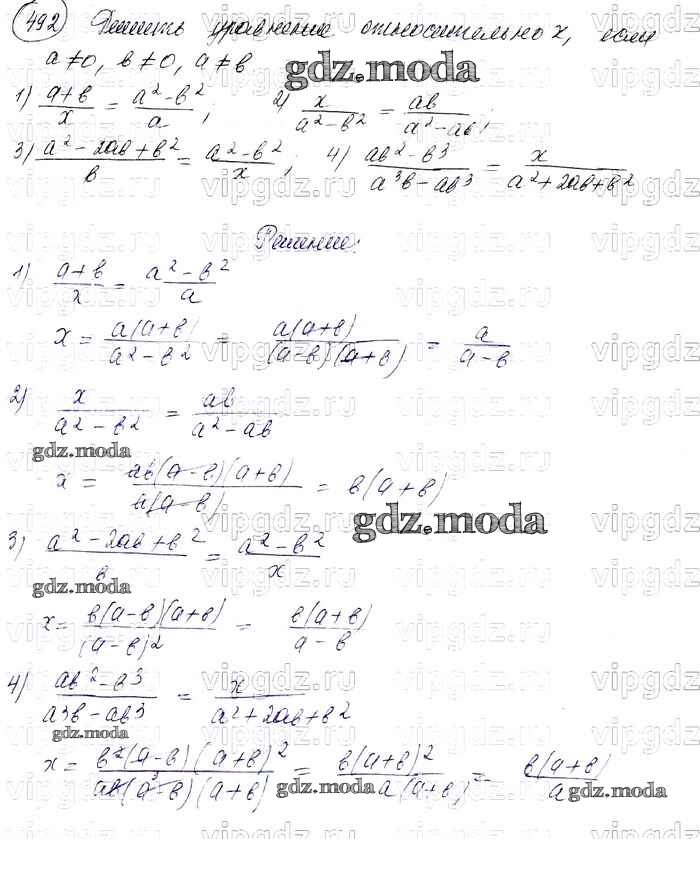 492 Решить уравнение относительно x, если
a≠0, b≠0, a≠b
gdz.moda
1) (a+b)/x = (a²-b²)/a ; 2) x/(a²-b²) = ab/(a²-ab) ;
3) (a²-2ab+b²)/b = (a²-b²)/x ; 4) (ab²-b³)/(a³b-ab³) = x/(a²+2ab+b²)
Решение:
1) (a+b)/x = (a²-b²)/a
x = a(a+b)/(a²-b²) = a(a+b)/((a-b)(a+b)) = a/(a-b)
2) x/(a²-b²) = ab/(a²-ab)
gdz.moda
x = ab(a-b)(a+b)/(a(a-b)) = b(a+b)
gdz.moda
3) (a²-2ab+b²)/b = (a²-b²)/x
gdz.moda
x = b(a-b)(a+b)/(a-b)2 = b(a+b)/(a-b)
4) (ab²-b3)/(a3b-ab3) = x/(a²+2ab+b²)
gdz.moda
x = b²(a-b)(a+b)²/(ab(a-b)(a+b)) = b(a+b)²/(a(a+b)) = b(a+b)/a
gdz.moda gdz.moda
vipgdz.ru